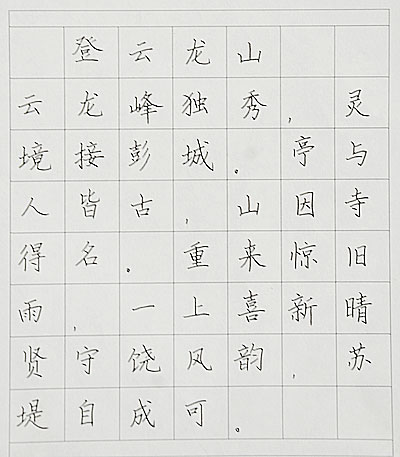 登云龙山
云龙峰独秀，灵
境接彭城。亭与
人皆古，山因寺
得名。重来惊旧
雨，一上喜新晴
贤守饶风韵，苏
堤自成可。